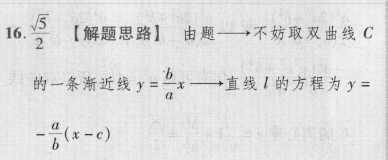 16. √5/2 【解题思路】 由题⟶不妨取双曲线 C
的一条渐近线 y = b/a x ⟶直线 l 的方程为 y =
- a/b (x - c)